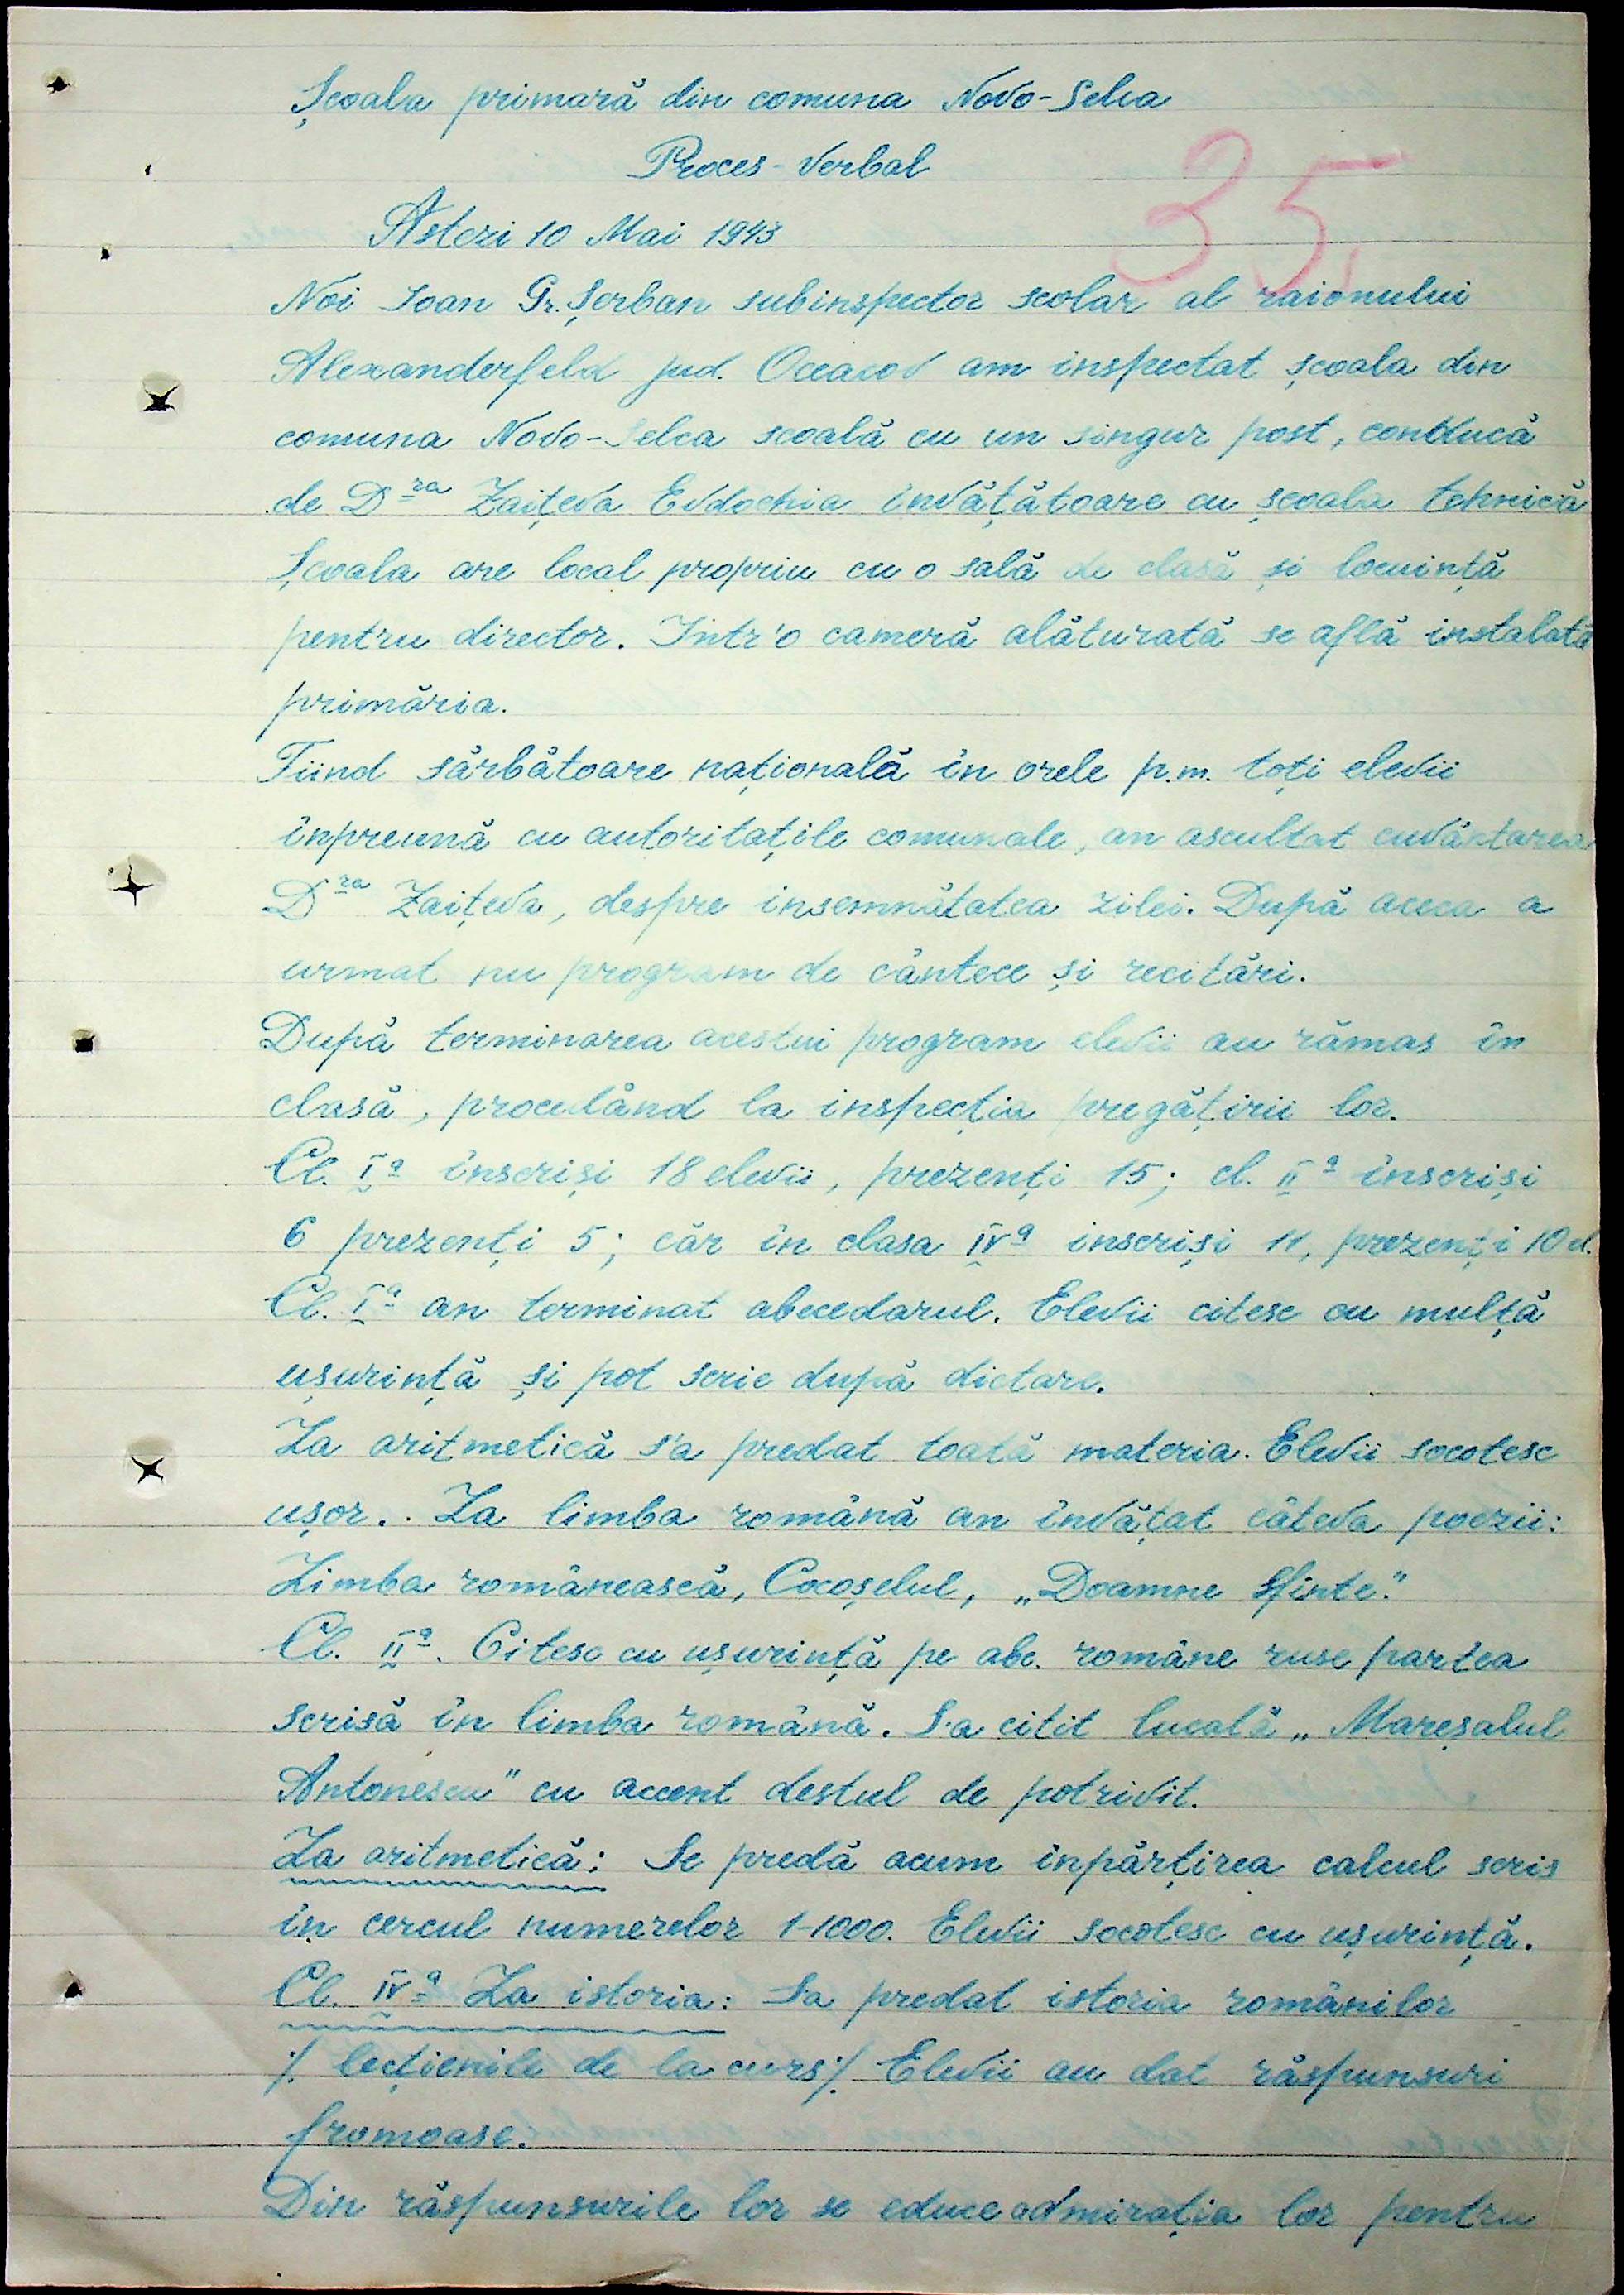 Școala primară din comuna Novo-Selca
Proces-Verbal
35
Astezi 10 Mai 1943
Noi Ioan Gr. Șerban subinspector scolar al raionului
Alexanderfeld jud. Oceacov am inspectat școala din
comuna Novo-Selca scoală cu un singur post, conducă
de Dra Zaițeva Evdochia învățătoare cu școala tehnică
Școala are local propriu cu o sală de clasă și locuință
pentru director. Într'o cameră alăturată se află instalată
primăria.
Fiind sărbătoare națională în orele p.m. toți elevii
înpreună cu autoritațile comunale, an ascultat cuvântarea
Dra Zaițeva, despre insemnătatea zilei. După aceea a
urmat nu program de cântece și recitări.
După terminarea acestui program elevii au rămas în
clasă, procedând la inspecția pregățirii lor.
Cl. Ia înscriși 18 elevii, prezenți 15; cl. IIa înscriși
6 prezenți 5; căr în clasa IVa inscriși 11, prezenți 10 el.
Cl. Ia an terminat abecedarul. Elevii citesc cu mulță
ușurință și pot scrie după dictare.
La aritmetică s'a predat toată materia. Elevii socotesc
ușor.. La limba română an învățat câteva poezii:
Limba românească, Cocoșelul, „Doamne Sfinte."
Cl. IIa. Citesc cu ușurință pe abc. române ruse partea
scrisă în limba română. S-a citit lucată „Mareșalul
Antonescu" cu accent destul de potrivit.
La aritmetică: Se predă acum înpărțirea calcul scris
în cercul numerelor 1-1000. Elevii socotesc cu ușurință.
Cl. IVa La istoria: Sa predat istoria românilor
/. lecțienile de la curs/. Elevii au dat răspunsuri
fromoase.
Din răspunsurile lor se educe admirația lor pentru